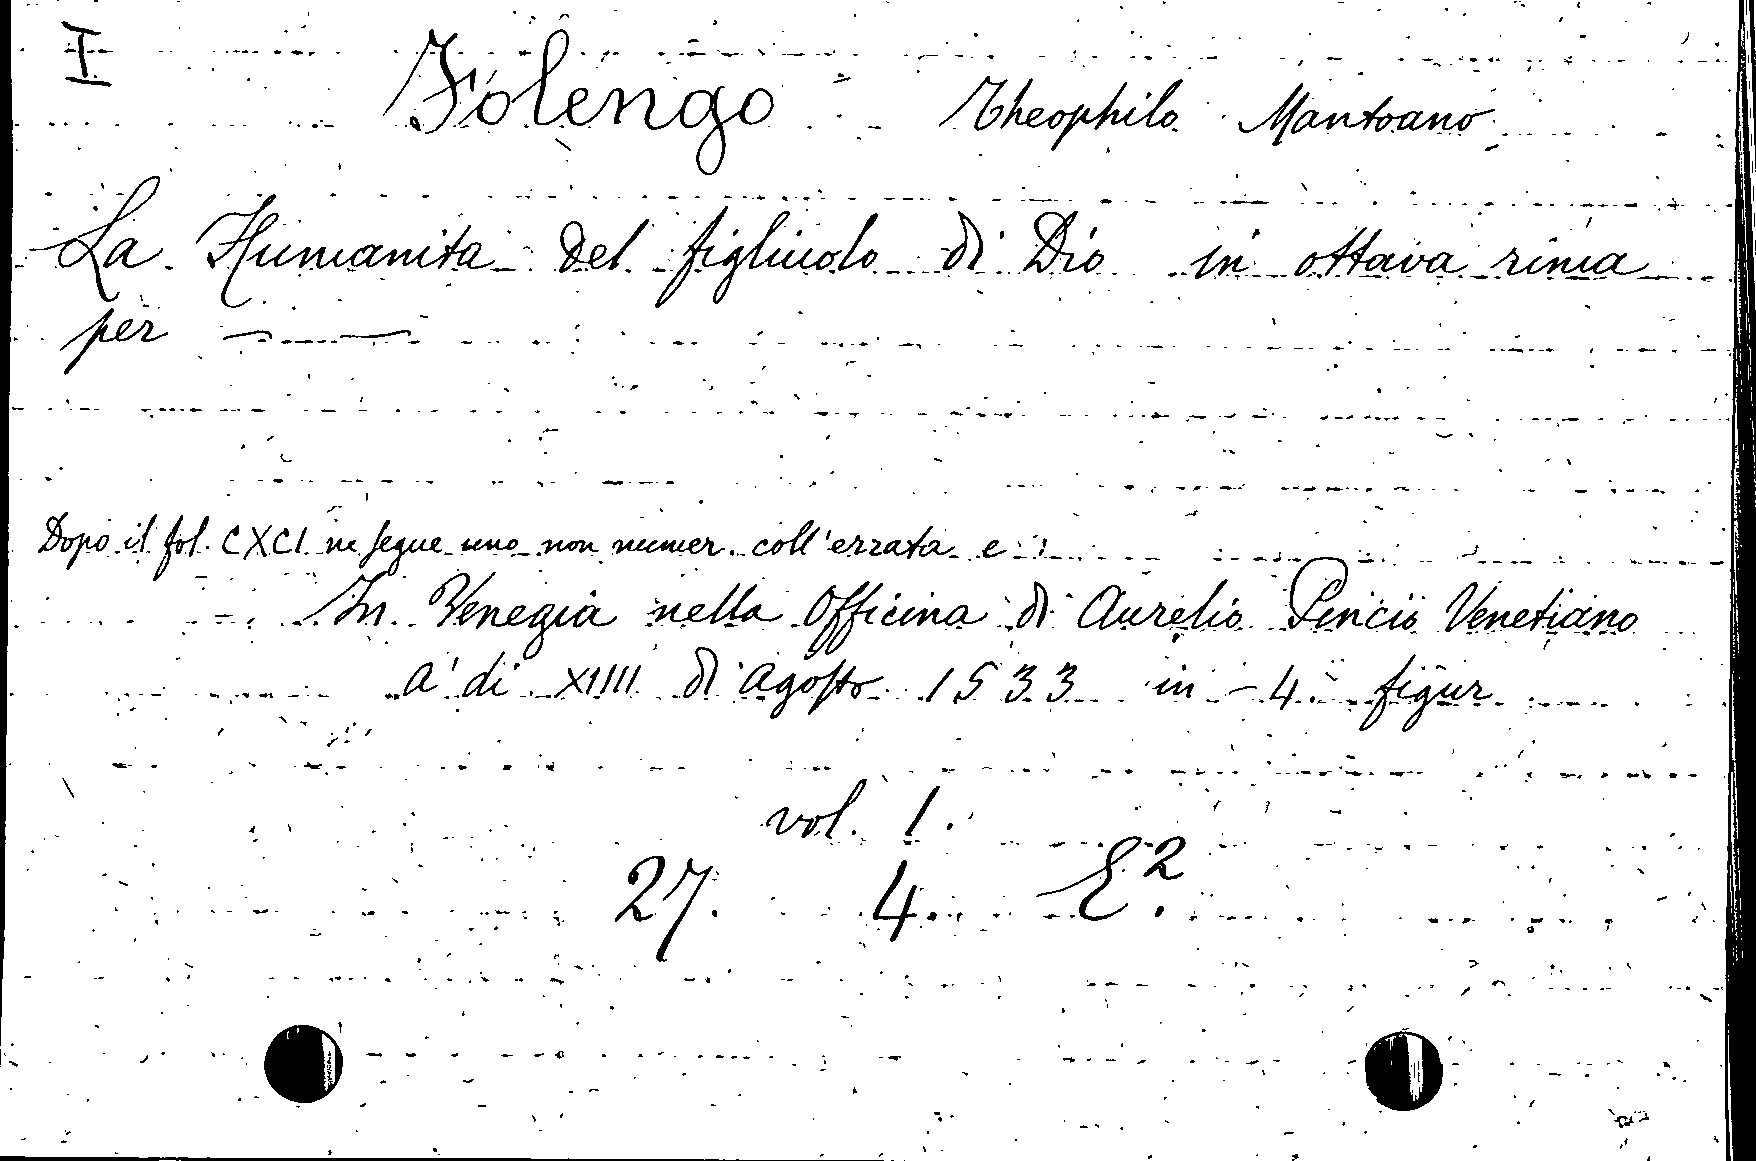 I
Folengo Theophilo Mantoano
La Humanita del figliuolo di Dio in ottava rima
per ———
Dopo il fol. CXCI ne segue uno non numer. coll'errata e
In Venegia nella Officina di Aurelio Pincio Venetiano
a' di XIIII di Agosto 1533 in - 4.° figur
vol. 1.
27. 4. E².